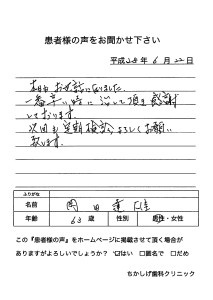 患者様の声をお聞かせ下さい
平成28年6月22日
本日もお世話になりました。
一番辛い時に治して頂き感謝
しております。
次回も定期検診よろしくお願い
致します。
ふりがな
名前 岡田
年齢 63歳 性別 男性・女性
この『患者様の声』をホームページに掲載させて頂く場合が
ありますがよろしいでしょうか？ ☑はい □匿名で □だめ
ちかしげ歯科クリニック